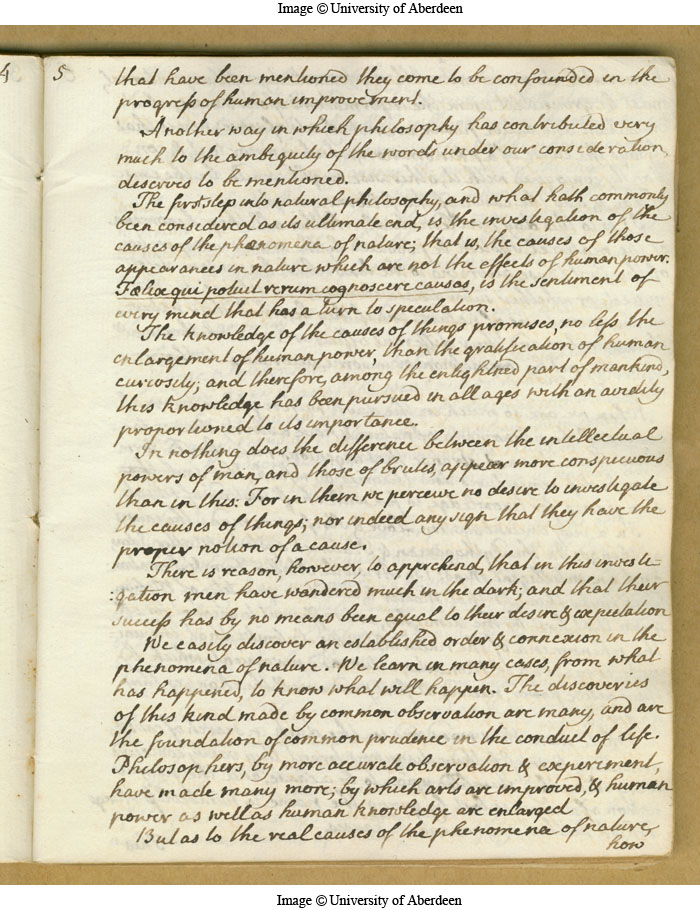 Image © University of Aberdeen
4
5
that have been mentioned they come to be confounded in the
progress of human improvement.
Another way in which philosophy has contributed very
much to the ambiguity of the words under our consideration,
deserves to be mentioned.
The first step into natural philosophy, and what hath commonly
been considered as its ultimate end, is the investigation of the
causes of the phænomena of nature; that is, the causes of those
appearances in nature which are not the effects of human power.
Fælix qui potuit rerum cognoscere causas, is the sentiment of
every mind that has a turn to speculation.
The knowledge of the causes of things promises, no less the
enlargement of human power, than the gratification of human
curiosity; and therefore, among the enlightned part of mankind,
this knowledge has been pursued in all ages with an avidity
proportioned to its importance.
In nothing does the difference between the intellectual
powers of man, and those of brutes, appear more conspicuous
than in this: For in them we perceive no desire to investigate
the causes of things; nor indeed any sign that they have the
proper notion of a cause.
There is reason, however, to apprehend, that in this investi-
:gation men have wandered much in the dark; and that their
success has by no means been equal to their desire & expectation
We easily discover an established order & connexion in the
phenomena of nature. We learn in many cases, from what
has happened, to know what will happen. The discoveries
of this kind made by common observation are many, and are
the foundation of common prudence in the conduct of life.
Philosophers, by more accurate observation & experiment,
have made many more; by which arts are improved, & human
power as well as human knowledge are enlarged
But as to the real causes of the phenomena of nature,
how
Image © University of Aberdeen